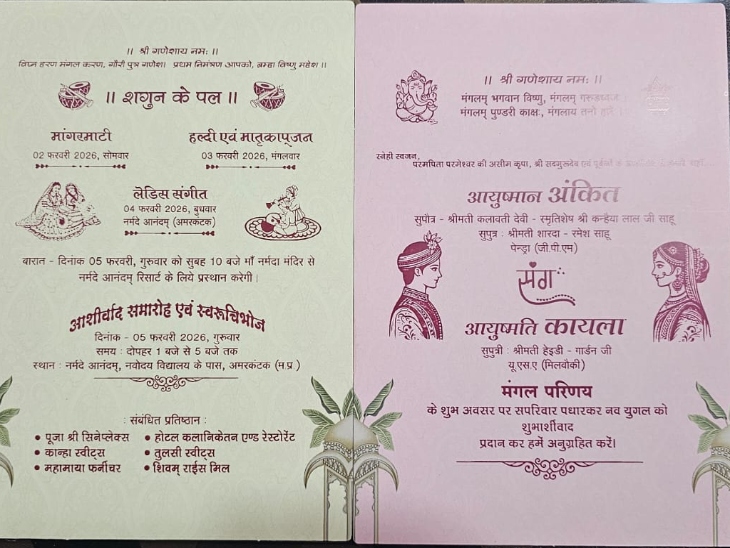 ।। श्री गणेशाय नमः ।।
विघ्न हरण मंगल करण, गौरी पुत्र गणेश। प्रथम निमंत्रण आपको, ब्रम्हा विष्णु महेश ।।
।। शगुन के पल ।।
मांगरमाटी
02 फरवरी 2026, सोमवार
हल्दी एवं मातृकापूजन
03 फरवरी 2026, मंगलवार
लेडिस संगीत
04 फरवरी 2026, बुधवार
नर्मदे आनंदम् (अमरकंटक)
बारात - दिनांक 05 फरवरी, गुरुवार को सुबह 10 बजे माँ नर्मदा मंदिर से
नर्मदे आनंदम् रिसार्ट के लिये प्रस्थान करेगी।
आशीर्वाद समारोह एवं स्वरूचिभोज
दिनांक - 05 फरवरी 2026, गुरुवार
समय : दोपहर 1 बजे से 5 बजे तक
स्थान : नर्मदे आनंदम्, नवोदय विद्यालय के पास, अमरकंटक (म.प्र.)
: संबंधित प्रतिष्ठान :
• पूजा श्री सिनेप्लेक्स
• कान्हा स्वीट्स
• महामाया फर्नीचर
• होटल कलानिकेतन एण्ड रेस्टोरेंट
• तुलसी स्वीट्स
• शिवम् राईस मिल
।। श्री गणेशाय नमः ।।
मंगलम् भगवान विष्णु, मंगलम्
मंगलम् पुण्डरी काक्षः, मंगलाय
स्नेही स्वजन,
परमपिता परमेश्वर की असीम कृपा, श्री सदगुरूदेव एवं
आयुष्मान अंकित
सुपौत्र - श्रीमती कलावती देवी - स्मृतिशेष श्री कन्हैया लाल जी साहू
सुपुत्र : श्रीमती शारदा - रमेश साहू
पेन्ड्रा (जी.पी.एम)
संग
आयुष्मति कायला
सुपुत्री : श्रीमती हेइडी - गार्डन जी
यू.एस.ए (मिलवौकी)
मंगल परिणय
के शुभ अवसर पर सपरिवार पधारकर नव युगल को
शुभाशीर्वाद
प्रदान कर हमें अनुग्रहित करें।